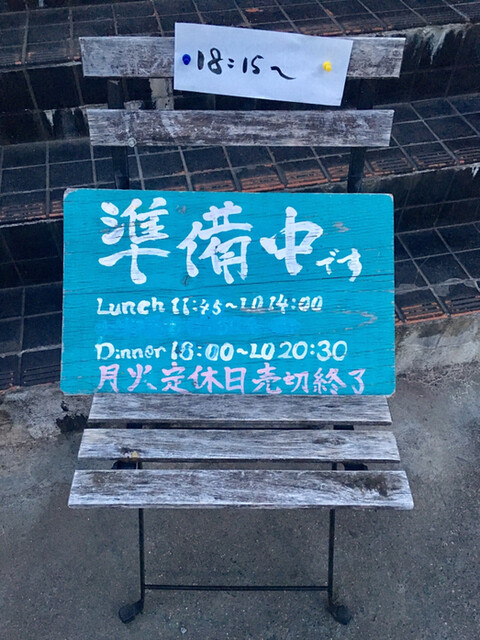 18:15~
準備中です
Lunch 11:45~LO 14:00
Dinner 18:00~LO 20:30
月火定休日売切終了